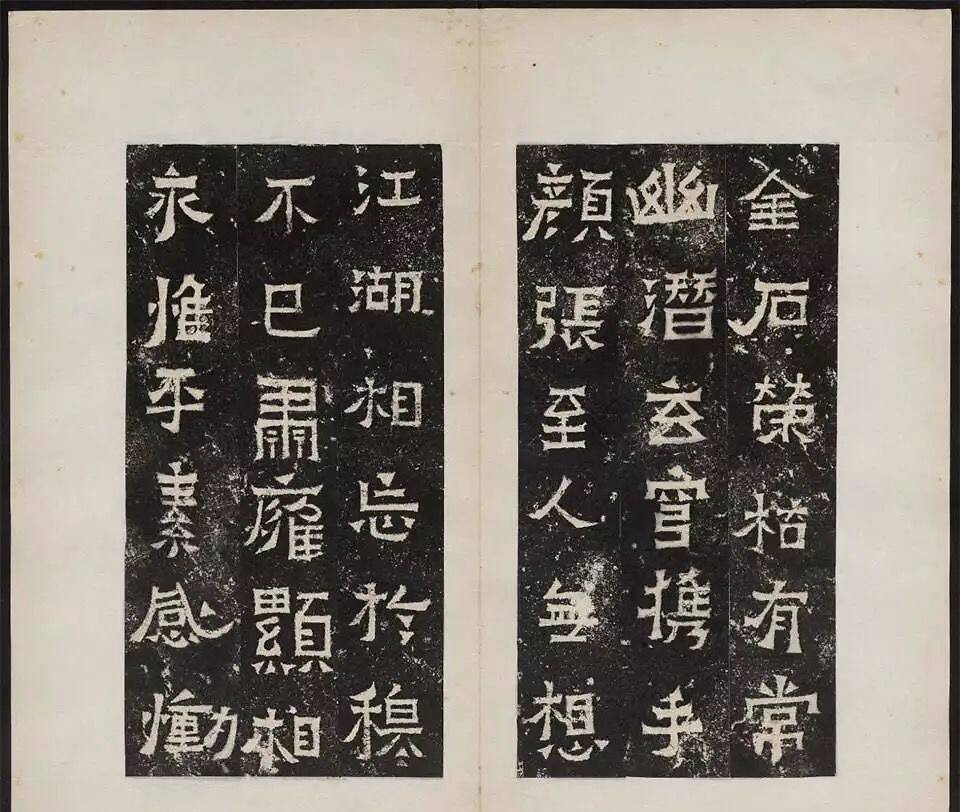 金石榮枯有常
幽潛玄穹携手
顏張至人無想
江湖相忘於穆
不已肅雍顯相
永惟平素感慟